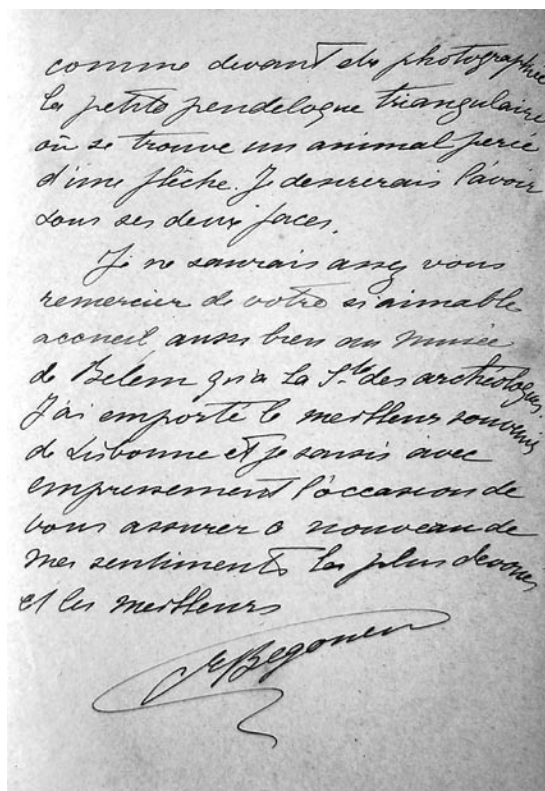 comme devant etre photographiée
La petite pendeloque triangulaire
où se trouve un animal percé
d'une flèche. Je desirerais l'avoir
sous ses deux faces.
Je ne saurais assez vous
remercier de votre si aimable
accueil aussi bien au Musée
de Belem qu'a la Sté des archéologues.
J'ai emporté le meilleur souvenir
de Lisbonne et je saisis avec
empressement l'occasion de
vous assurer à nouveau de
mes sentiments les plus devoués
et les meilleurs
Begouen